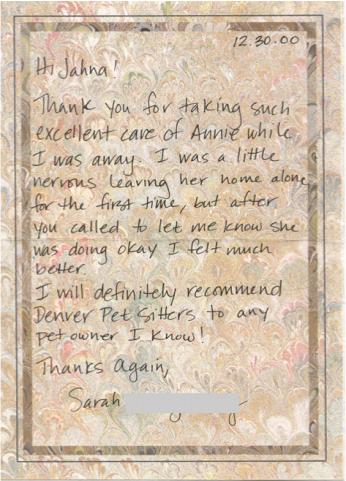 12.30.00
Hi Jahna!
Thank you for taking such
excellent care of Annie while
I was away. I was a little
nervous leaving her home alone
for the first time, but after
you called to let me know she
was doing okay I felt much
better.
I will definitely recommend
Denver Pet Sitters to any
pet owner I know!
Thanks Again,
Sarah